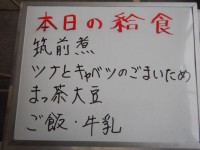 本日の給食
筑前煮
ツナとキャベツのごまいため
まっ茶大豆
ご飯・牛乳